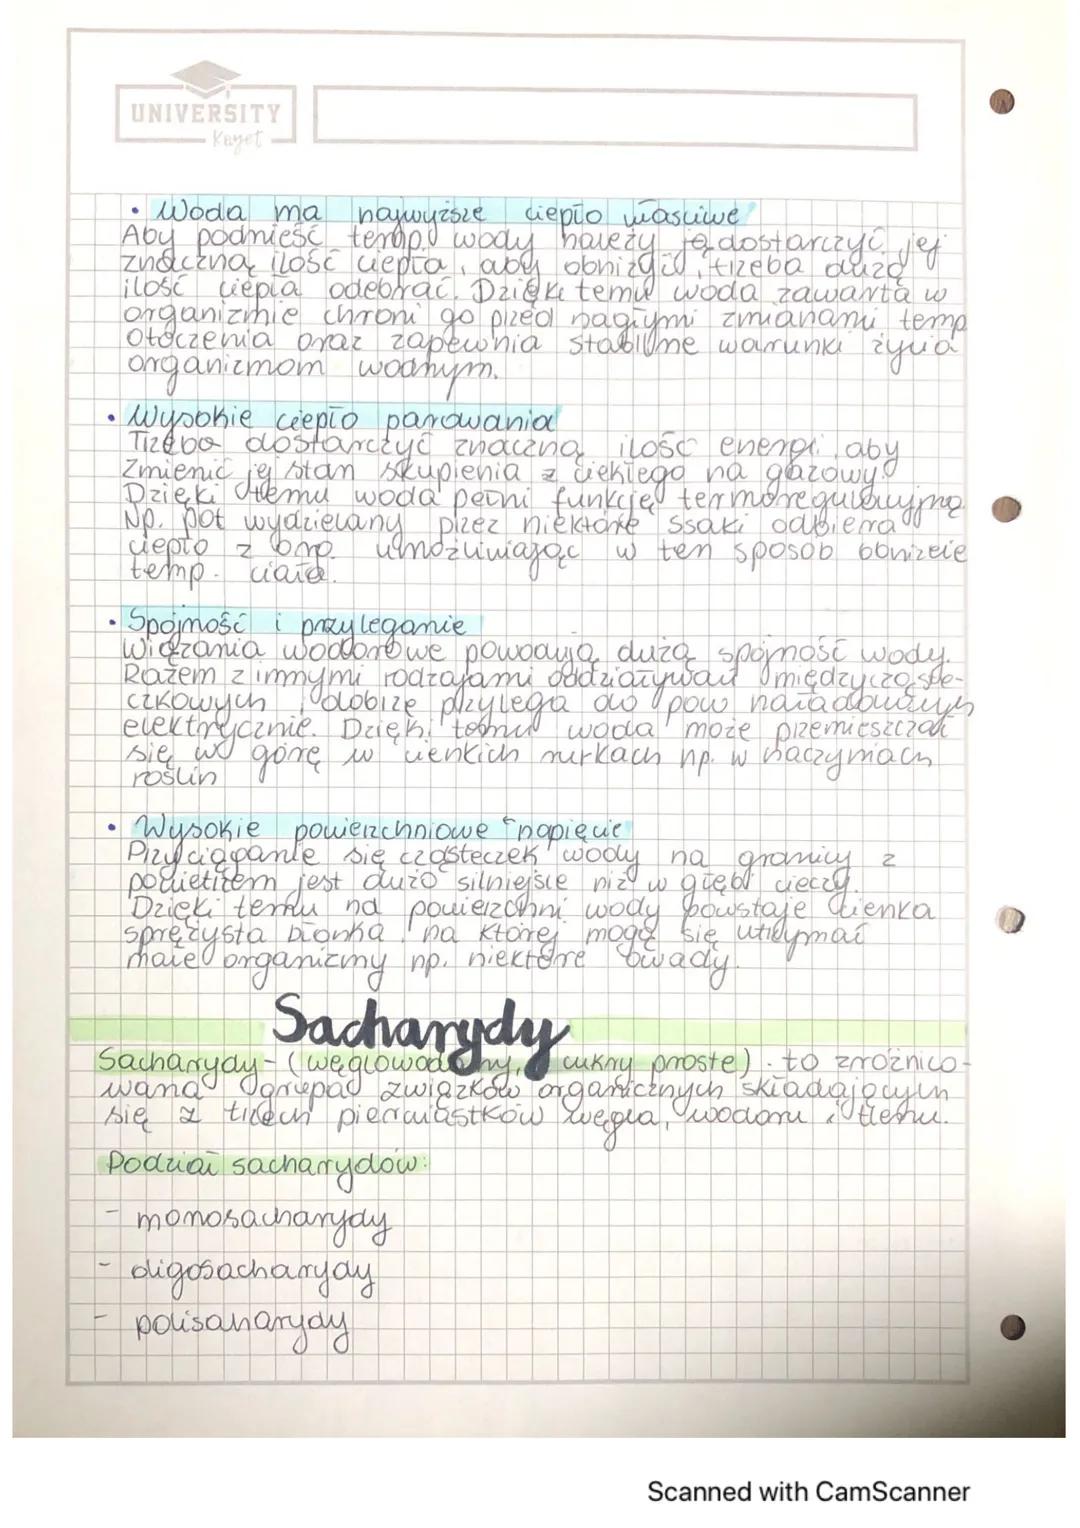 UNIVERSITY
Kayet
• Woda ma najwyższe ciepło właściwe
Aby podnieść temp. wody należy ją dostarczyć jej
znaczną ilość ciepła, aby obniżyć, trzeba dużą
ilość ciepła odebrać. Dzięki temu woda zawarta w
organizmie chroni go przed nagłymi zmianami temp
otoczenia oraz zapewnia stabilne warunki życia
organizmom wodnym.
• Wysokie ciepło parowania
Trzeba dostarczyć znaczną ilość energi, aby
zmienić jej stan skupienia z ciekłego na gazowy.
Dzięki temu woda pełni funkcję termoregulacyjną.
Np. pot wydzielany przez niektóre ssaki odbiera
ciepło z umożliwiając w ten sposób obniżeie
temp. ciała.
• Spójność i przyleganie
Wiązania wodorowe powodują dużą spójność wody.
Razem z innymi rodzajami oddziaływań międzycząste-
czkowych dobrze przylega do pow naładowanych
elektrycznie. Dzięki temu woda może przemieszczać
się w górę w cienkich rurkach np. w naczyniach
roślin
• Wysokie powierzchniowe napięcie
Przyciąganie się cząsteczek wody na granicy z
powietrzem jest dużo silniejsze niż w głębi cieczy.
Dzięki temu na powierzchni wody powstaje cienka
sprężysta błonka na której mogą się utrzymać
małe organizmy np. niektóre owady.
Sacharydy
Sacharydy - (węglowodany, cukry proste) - to zróżnico-
wana grupa związków organicznych składających
się z trzech pierwiastków węgla, wodoru i tlenu.
Podział sacharydów:
- monosacharydy
- oligosacharydy
- polisaharydy
Scanned with CamScanner